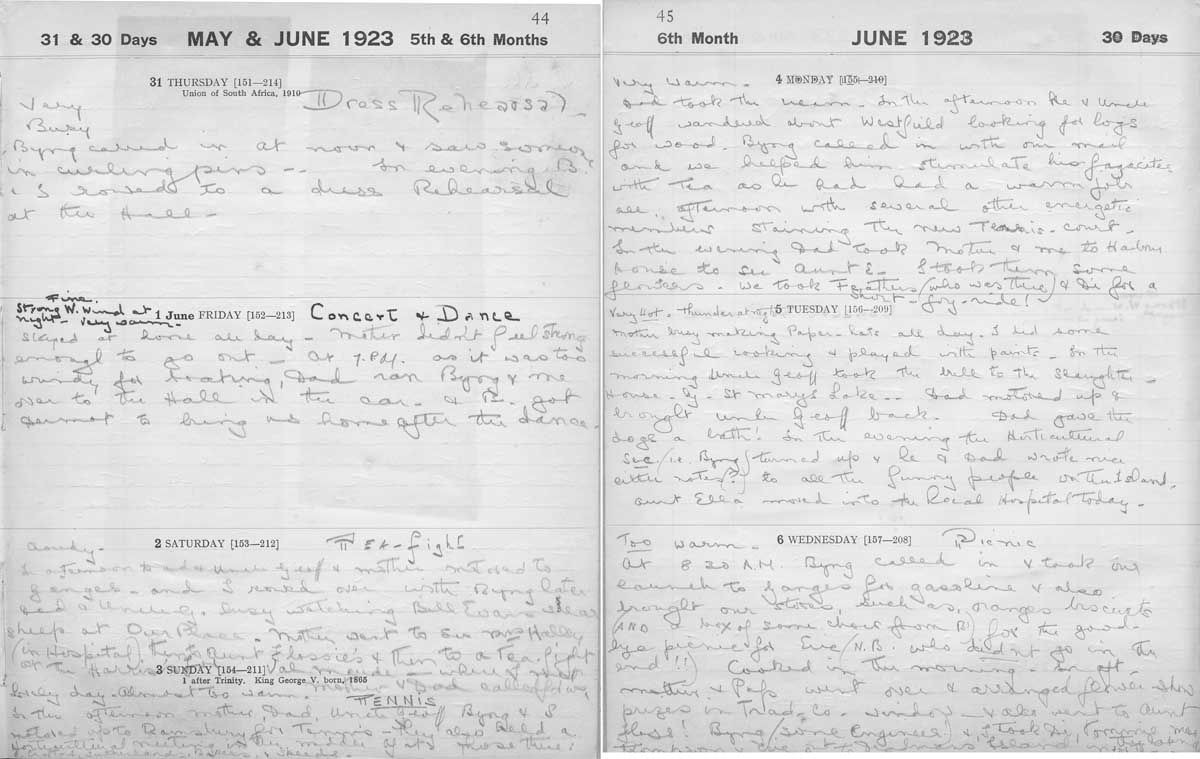 44
31 & 30 Days MAY & JUNE 1923 5th & 6th Months
31 THURSDAY [151—214]
Union of South Africa, 1910
Very Dress Rehearsal
Busy
Byng called in at noon & saw
in curling pins -- In evening, B.
& I rowed to a dress Rehearsal
at the Hall -
Fine.
Strong W. Wind at
night - very warm -
1 June FRIDAY [152—213] Concert & Dance
Stayed at home all day - Mother didn't feel strong
enough to go out - At 7. as it was too
windy for boating, Dad ran Byng & me
over to the Hall in the car. & B. got
Dermot to bring us home after the dance.
2 SATURDAY [153—212] Tea-fight
In afternoon Dad & Uncle Geoff & mother motored to
Ganges - and I rowed over with Byng later
Dad & Uncle G. busy watching Bell Evans shear
sheep at Our Place. Mother went to see Mrs Halley
(in Hospital) then Aunt Flossie's & then to a Tea-fight
at the
3 SUNDAY [154—211]
1 after Trinity. King George V. born, 1865
day - Almost too warm.
TENNIS
In the afternoon mother, Dad, Uncle Geoff Byng & I
to for Tennis - They also held a
Horticultural meeting in the middle of it
45
6th Month JUNE 1923 30 Days
4 MONDAY [155—210]
Very warm -
Dad took the In the afternoon he & Uncle
Geoff wandered about Westfield looking for logs
for wood. Byng called in with our mail
and we helped him stimulate his
with Tea as he had had a warm job
all afternoon with several other energetic
members staining the new Tennis-court -
In the evening Dad took Mother & me to Harbour
House to see Aunt E - I took them some
flowers. - We took (who was there) & Di for a
short joy-ride!
5 TUESDAY [156—209]
Very Hot - Thunder at night
Mother busy making Paper-hats all day. I did some
successful cooking & played with paints - In the
morning Uncle Geoff took the to the Slaughter
House - by St Marys Lake -- Dad motored up &
brought Uncle Geoff back. Dad gave the
dogs a bath! In the evening the Horticultural
Sec (i.e. Byng) turned up & he & Dad wrote nice
notes(?) to all the funny people on the Island.
Aunt Ella moved into the Hospital today.
6 WEDNESDAY [157—208] Picnic
Too warm -
At 8 20 A.M. Byng called in & took our
launch to Ganges for gasoline & also
brought our stores, such as, oranges biscuits
AND a box of some chocs (from B) for the good-
bye picnic for Eve (N.B. who didn't go in the
end!!) Cooked in the morning - In aft -
Mother & Pops went over & arranged flower show
prizes in Trad-Co. window - & also went to Aunt
Floss! Byng (some Engineer) & I took Di, Tommie,